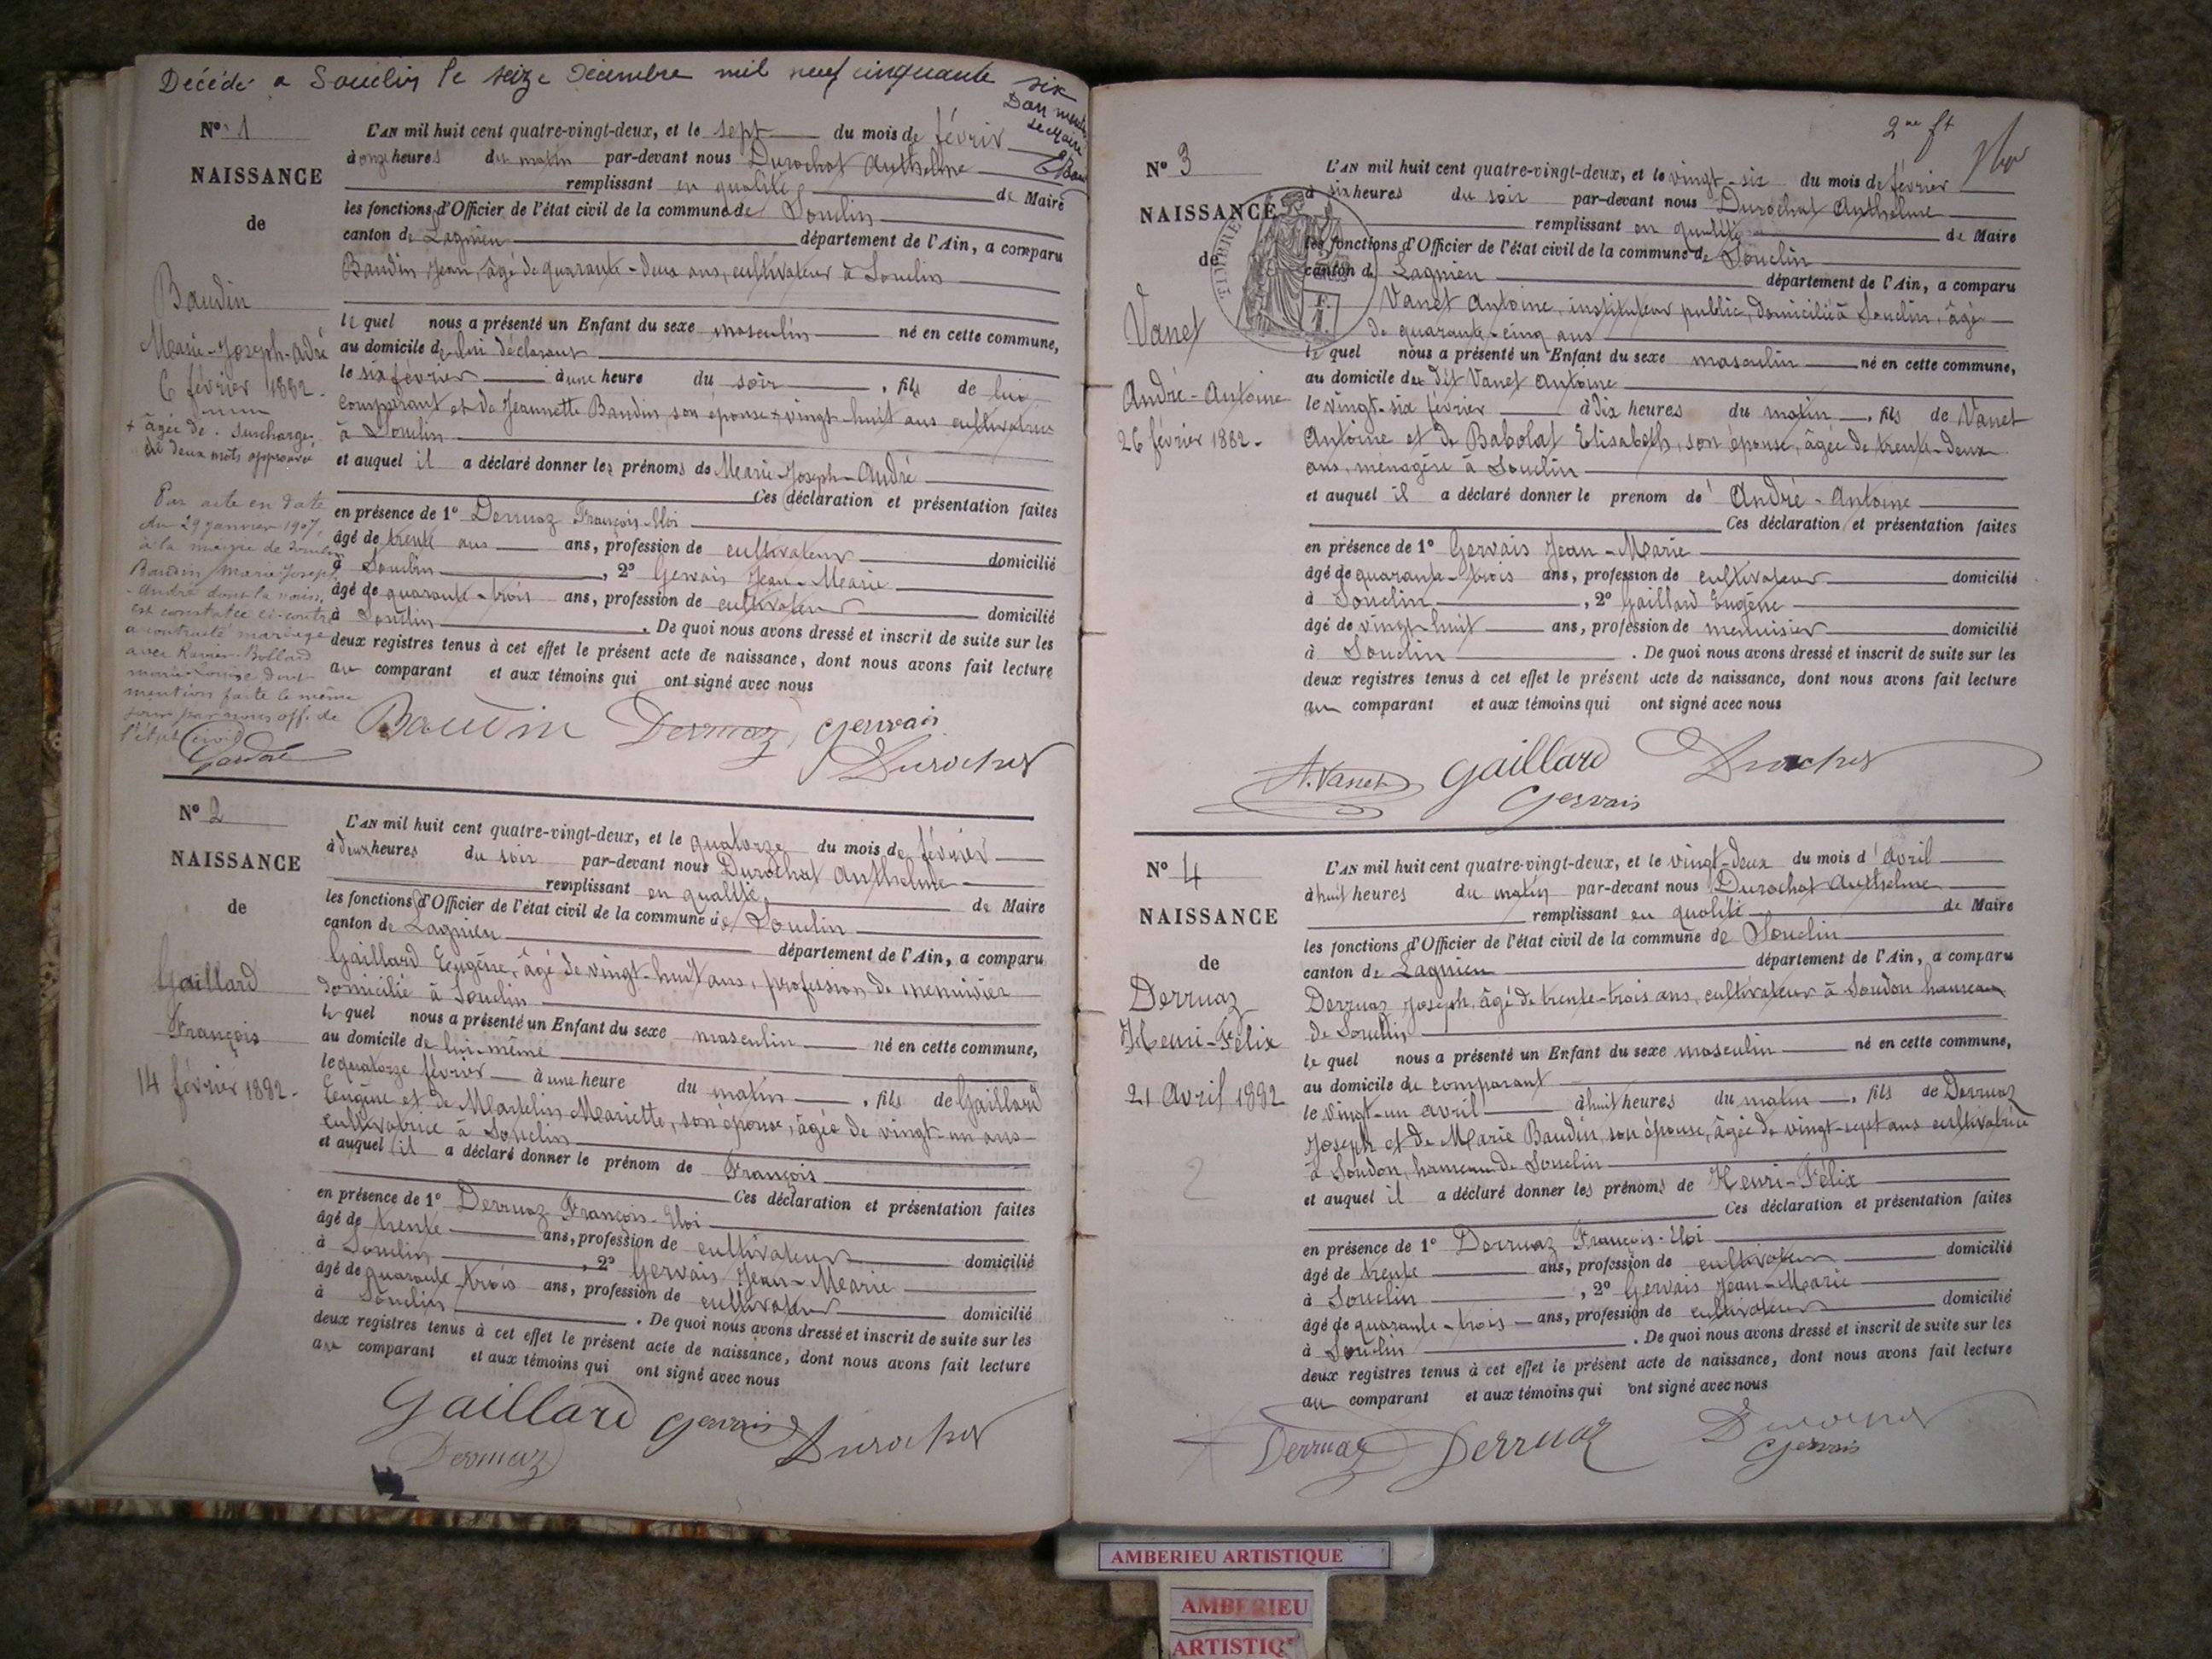 Décédé a Souclin le seize Décembre mil neuf cinquante six
le Maire
N° 1
NAISSANCE
de
Baudin
Marie-Joseph-André
6 février 1882.
+ âgée de. Surcharge,
de deux mots approuvée
Par acte en date
du 29 janvier 1907,
à la mairie de Souclin
Baudin Marie-Joseph
-André dont la naiss.
est constatée ci-contre
a contracté mariage
avec Ravier-Bollard
Marie Louise dont
mention faite le même
jour par nous off. de
l'état civil
L'AN mil huit cent quatre-vingt-deux, et le sept du mois de févrir
à onze heures du matin par-devant nous Durochat Anthelme
remplissant en qualité de Maire
les fonctions d'Officier de l'état civil de la commune de Souclin
canton de Lagnieu département de l'Ain, a comparu
Baudin Jean, âgé de quarante-deux ans, cultivateur à Souclin
le quel nous a présenté un Enfant du sexe masculin né en cette commune,
au domicile de lui déclarant
le six février à une heure du soir , fils de lui
comparant et de Jeannette Baudin, son épouse + vingt-huit ans cultivatrice
à Souclin
et auquel il a déclaré donner les prénoms de Marie-Joseph-André
Ces déclaration et présentation faites
en présence de 1° Derruaz François-Eloi
âgé de trente ans ans, profession de cultivateur domicilié
à Souclin , 2° Gervais Jean-Marie
âgé de quarante-trois ans, profession de cultivateur domicilié
à Souclin . De quoi nous avons dressé et inscrit de suite sur les
deux registres tenus à cet effet le présent acte de naissance, dont nous avons fait lecture
au comparant et aux témoins qui ont signé avec nous
Baudin Derruaz Gervais
Durochat
N° 2
NAISSANCE
de
Gaillard
François
14 février 1882.
L'AN mil huit cent quatre-vingt-deux, et le quatorze du mois de février
à deux heures du soir par-devant nous Durochat Anthelme
remplissant en qualité de Maire
les fonctions d'Officier de l'état civil de la commune de Souclin
canton de Lagnieu département de l'Ain, a comparu
Gaillard Eugène, âgé de vingt-huit ans, profession de menuisier
domicilié à Souclin
le quel nous a présenté un Enfant du sexe masculin né en cette commune,
au domicile de lui-même
le quatorze février à une heure du matin , fils de Gaillard
Eugène et de Mariette, son épouse, âgée de vingt-un ans
cultivatrice à Souclin
et auquel il a déclaré donner le prénom de François
Ces déclaration et présentation faites
en présence de 1° Derruaz François-Eloi
âgé de trente ans, profession de cultivateur domicilié
à Souclin , 2° Gervais Jean-Marie
âgé de quarante-trois ans, profession de cultivateur domicilié
à Souclin . De quoi nous avons dressé et inscrit de suite sur les
deux registres tenus à cet effet le présent acte de naissance, dont nous avons fait lecture
au comparant et aux témoins qui ont signé avec nous
Gaillard Gervais Durochat
Derruaz
2me ft
N° 3
NAISSANCE
de
TIMBRE
Vanet
André-Antoine
26 février 1882.
L'AN mil huit cent quatre-vingt-deux, et le vingt-six du mois de février
à six heures du soir par-devant nous Durochat Anthelme
remplissant en qualité de Maire
les fonctions d'Officier de l'état civil de la commune de Souclin
canton de Lagnieu département de l'Ain, a comparu
Vanet Antoine, instituteur public, domicilié à Souclin, âgé
de quarante-cinq ans
le quel nous a présenté un Enfant du sexe masculin né en cette commune,
au domicile du dit Vanet Antoine
le vingt-six février à dix heures du matin , fils de Vanet
Antoine et de Babolat Elisabeth, son épouse, âgée de trente-deux
ans, ménagère à Souclin
et auquel il a déclaré donner le prénom de André-Antoine
Ces déclaration et présentation faites
en présence de 1° Gervais Jean-Marie
âgé de quarante-trois ans, profession de cultivateur domicilié
à Souclin , 2° Gaillard Eugène
âgé de vingt-huit ans, profession de menuisier domicilié
à Souclin . De quoi nous avons dressé et inscrit de suite sur les
deux registres tenus à cet effet le présent acte de naissance, dont nous avons fait lecture
au comparant et aux témoins qui ont signé avec nous
A. Vanet Gaillard Durochat
Gervais
N° 4
NAISSANCE
de
Derruaz
Henri-Félix
21 Avril 1882
2
L'AN mil huit cent quatre-vingt-deux, et le vingt-deux du mois d'Avril
à huit heures du matin par-devant nous Durochat Anthelme
remplissant en qualité de Maire
les fonctions d'Officier de l'état civil de la commune de Souclin
canton de Lagnieu département de l'Ain, a comparu
Derruaz Joseph, âgé de trente-trois ans, cultivateur à Soudon hameau
de Souclin
le quel nous a présenté un Enfant du sexe masculin né en cette commune,
au domicile du comparant
le vingt-un avril à huit heures du matin , fils de Derruaz
Joseph et de Marie Baudin, son épouse, âgée de vingt-sept ans cultivatrice
à Soudon, hameau de Souclin
et auquel il a déclaré donner les prénoms de Henri-Félix
Ces déclaration et présentation faites
en présence de 1° Derruaz François-Eloi
âgé de trente ans, profession de cultivateur domicilié
à Souclin , 2° Gervais Jean-Marie
âgé de quarante-trois ans, profession de cultivateur domicilié
à Souclin . De quoi nous avons dressé et inscrit de suite sur les
deux registres tenus à cet effet le présent acte de naissance, dont nous avons fait lecture
au comparant et aux témoins qui ont signé avec nous
Derruaz Derruaz Durochat
Gervais
AMBERIEU ARTISTIQUE
AMBERIEU
ARTISTIQ